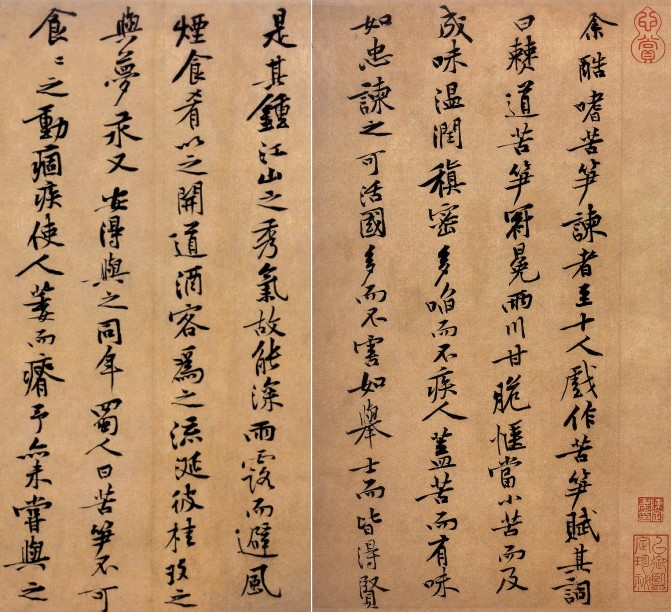 余酷嗜苦笋諫者至十人戲作苦笋賦其詞
曰僰道苦笋冠冕兩川甘脆愜當小苦而及
成味温潤稹密多啗而不疾人蓋苦而有味
如忠諫之可活國多而不害如舉士而皆得賢
是其鍾江山之秀氣故能深雨露而避風
煙食肴以之開道酒客爲之流涎彼桂玫之
與夢汞又安得與之同年蜀人曰苦笋不可
食〻之動痼疾使人萎而瘠予亦未嘗與之